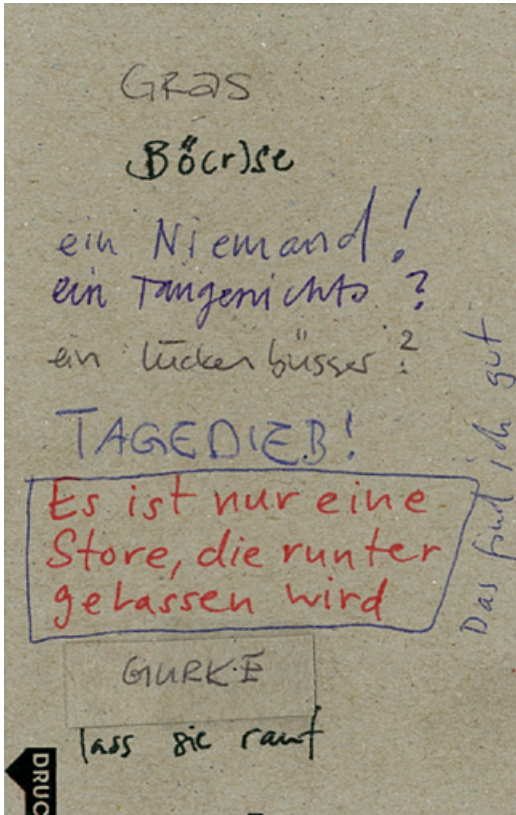 Gras
Bö(r)se
ein Niemand!
ein Taugenichts?
ein Lückenbüsser?
TAGEDIEB!
Es ist nur eine
Store, die runter
gelassen wird
Das find ich gut
GURKE
lass sie rauf
DRUC